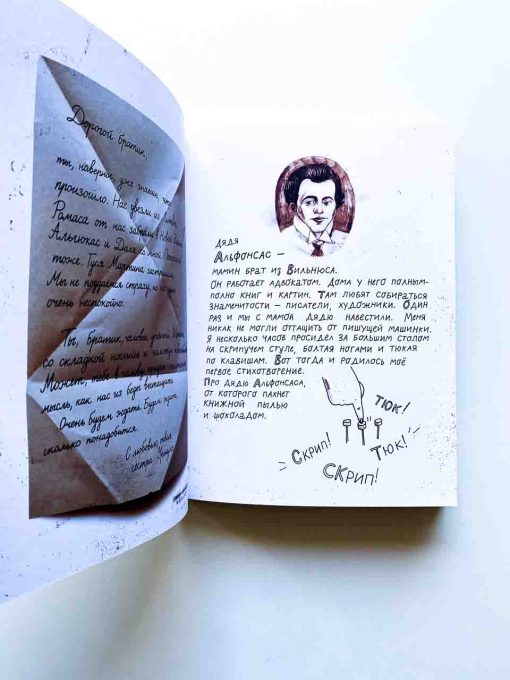 Дорогой братик,
ты, наверное, уже знаешь, что
произошло. Нас увезли из Литвы.
Ромаса от нас забрали в
Альгюкас и Даля со мной.
тоже. Гуся Мартина застрелили.
Мы не поддаёмся страху, но
очень неспокойно.
Ты, братик, человек учёный.
со складной ножкой и
Может, тебе в голову придёт
мысль, как нас из беды вытащить.
Очень будем ждать. Будем ждать,
сколько понадобится.
С любовью, твоя
сестра
Дядя
Альфонсас –
мамин брат из Вильнюса.
Он работает адвокатом. Дома у него полным-
полно книг и картин. Там любят собираться
знаменитости – писатели, художники. Один
раз и мы с мамой дядю навестили. Меня
никак не могли оттащить от пишущей машинки.
Я несколько часов просидел за большим столом
на скрипучем стуле, болтая ногами и тюкая
по клавишам. Вот тогда и родилось моё
первое стихотворение.
Про дядю Альфонсаса,
от которого пахнет
книжной пылью
и шоколадом.
Тюк!
Тюк!
Скрип!
Скрип!